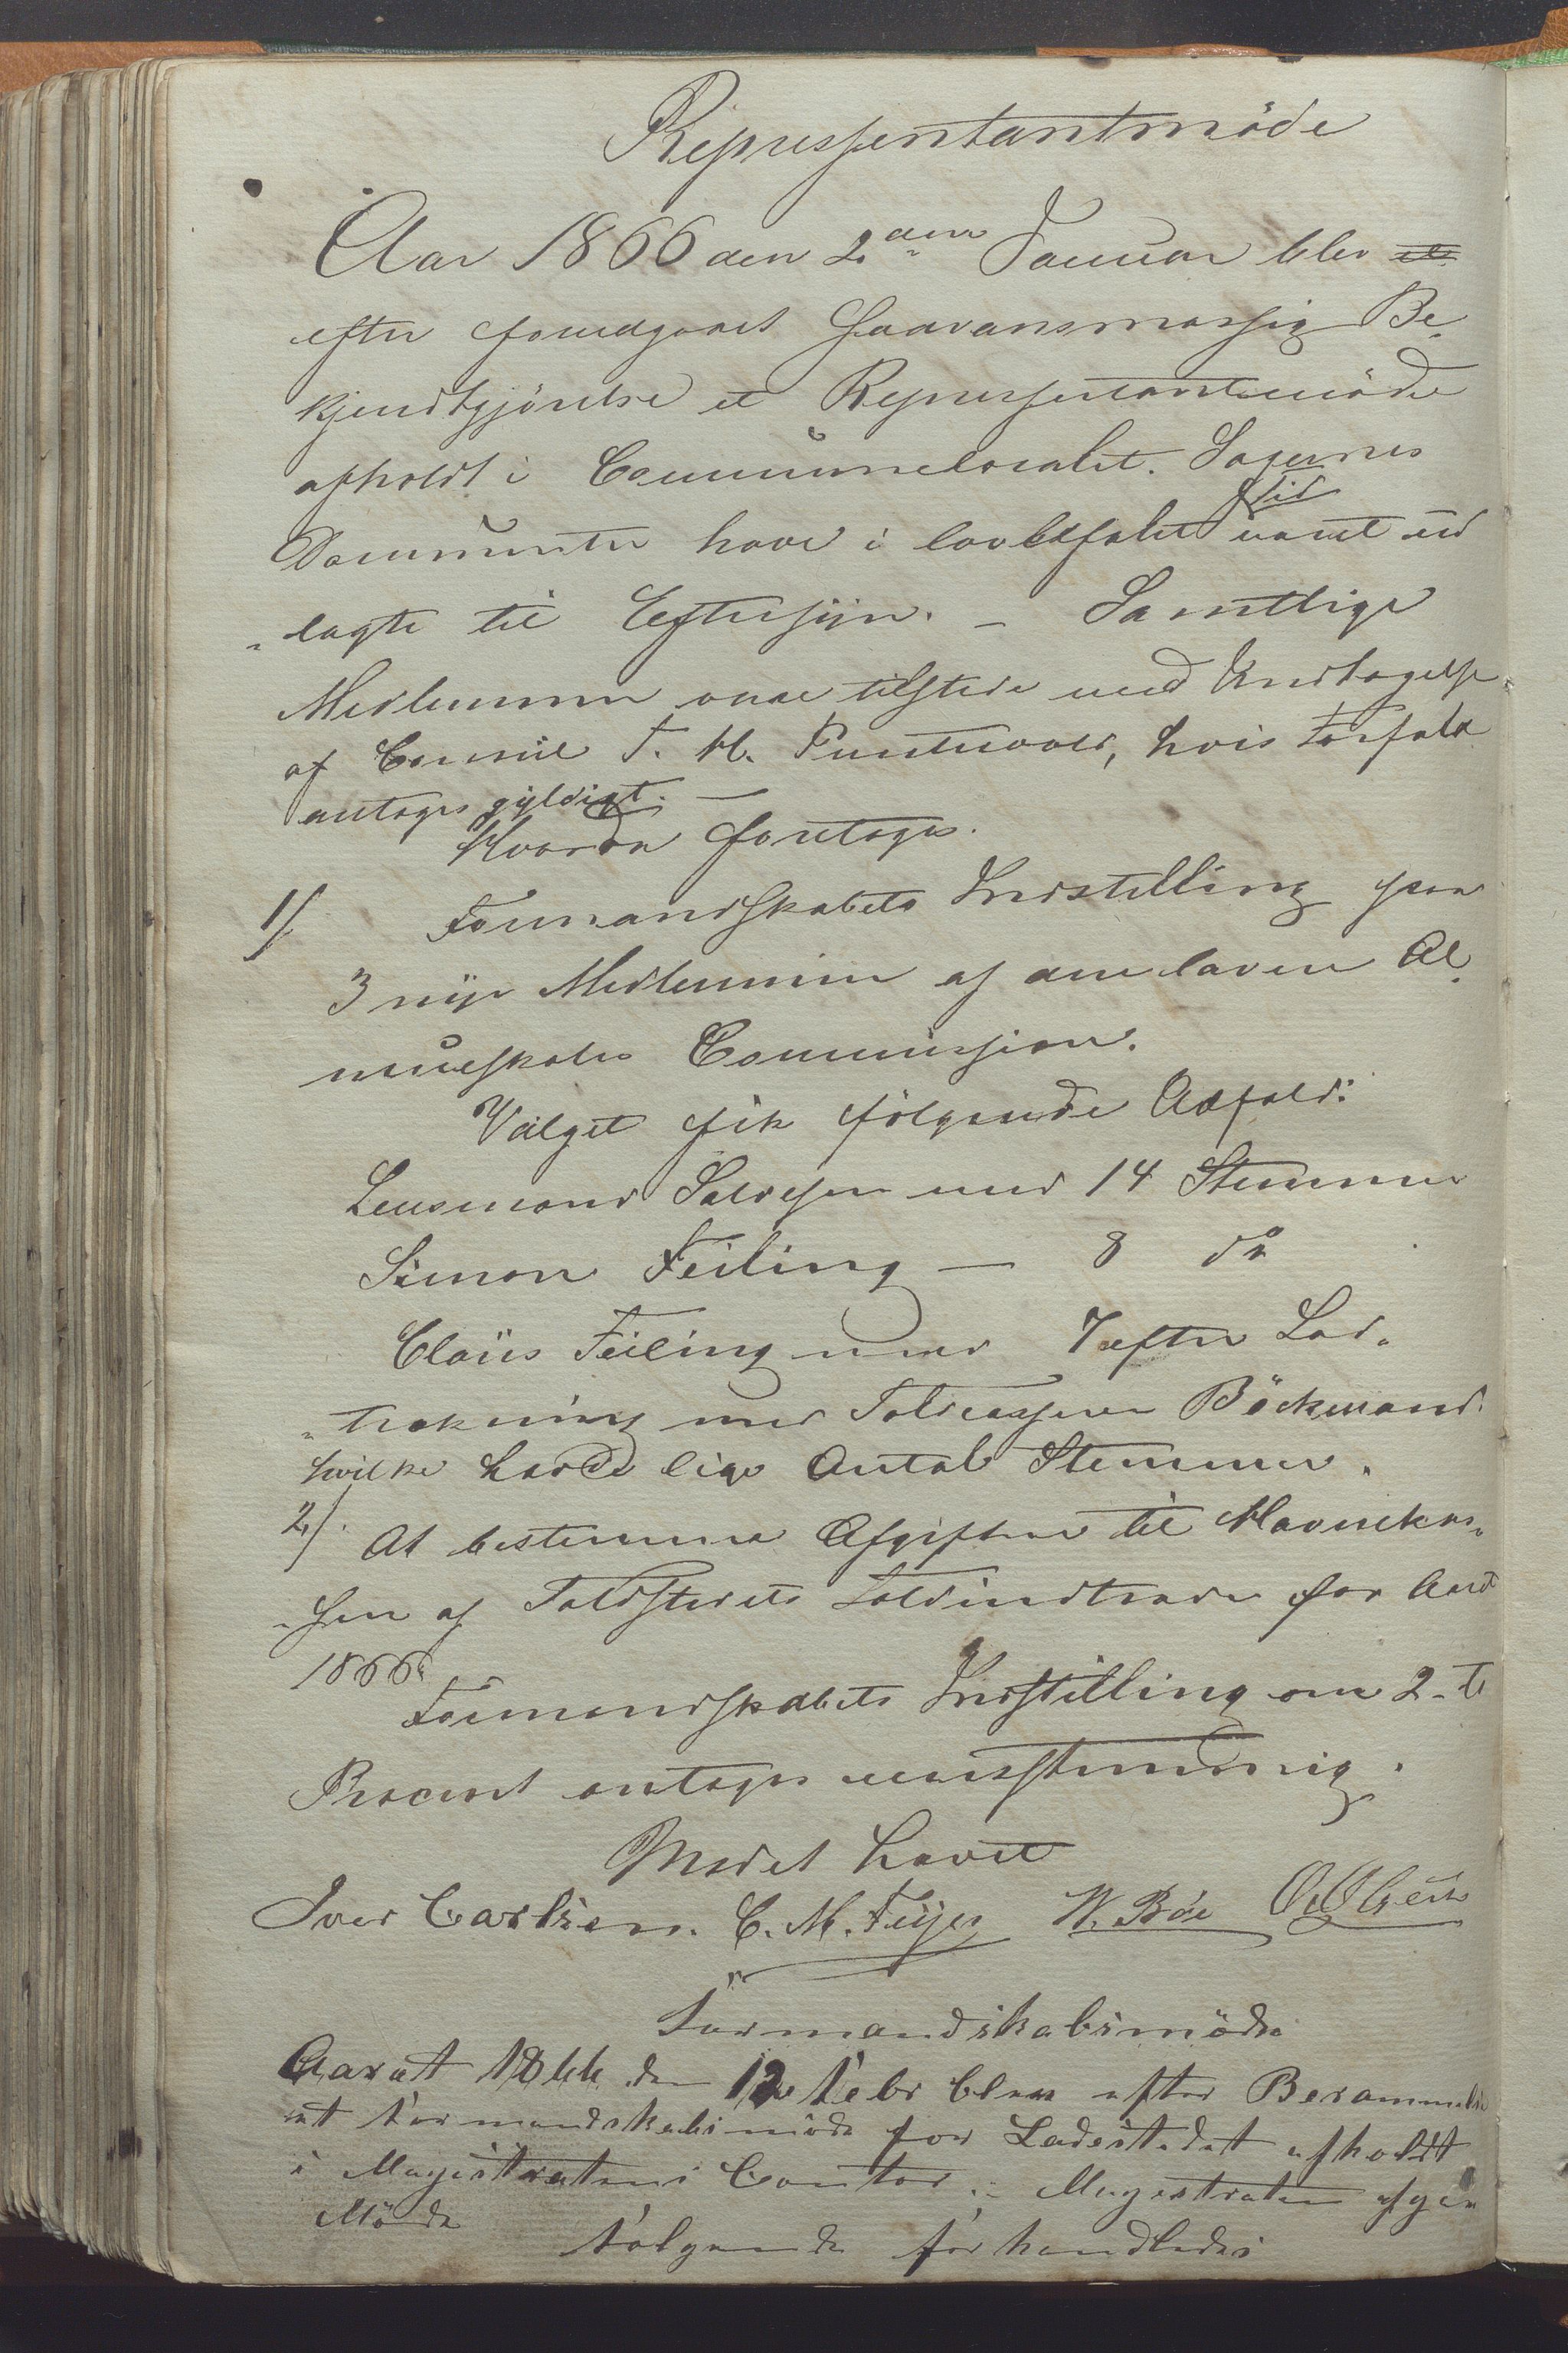 Repræsentantmöde
Aar 1866 den 2den Januar blev et
efter foredgaaet Saavansmæssig Be¬
kjendtgjörelse et Repræsentantmöde
afholdt i Communelocalet. Sagernes
Documenter have i lovbefalet Tid været ud
„lagte til Eftersyn. – Samtlige
Medlemmer vare tilstede med Undtagelse
af Consul T. M. Puntervold, hvis Forfald
antages gyldigt. –
Hvorda foretages.
1/ Formandskabets Indstilling paa
3 nye Medlemmer af den lavere Al¬
mueskoles Commission.
Valget fik følgende Udfald:
Lensmand Salvesen med 14 Stemmer
Simon Feiling – 8 do
Claus Feiling med 7 efter Lod„
„trækning med Toldcasserer Böckmand
hvilke havde lige Antal Stemmer.
2/. At bestemme Afgiften til Havnekas„
„sen af Toldstedets Toldindtrader for Aaret
1866.
Formandskabets Indstilling om 2 -to
Procent antages eensstemmig.
Mødet hævet
Iver Carlsen. C. M. Feyer W. Böe
Formandskabsmöde
Aaret 1866 den 12 Febr blev efter Berammelse
et Formandskabsmöde for Ladestedet afholdt
i Magistratens Contor.
Möde
Følgende forhandledes